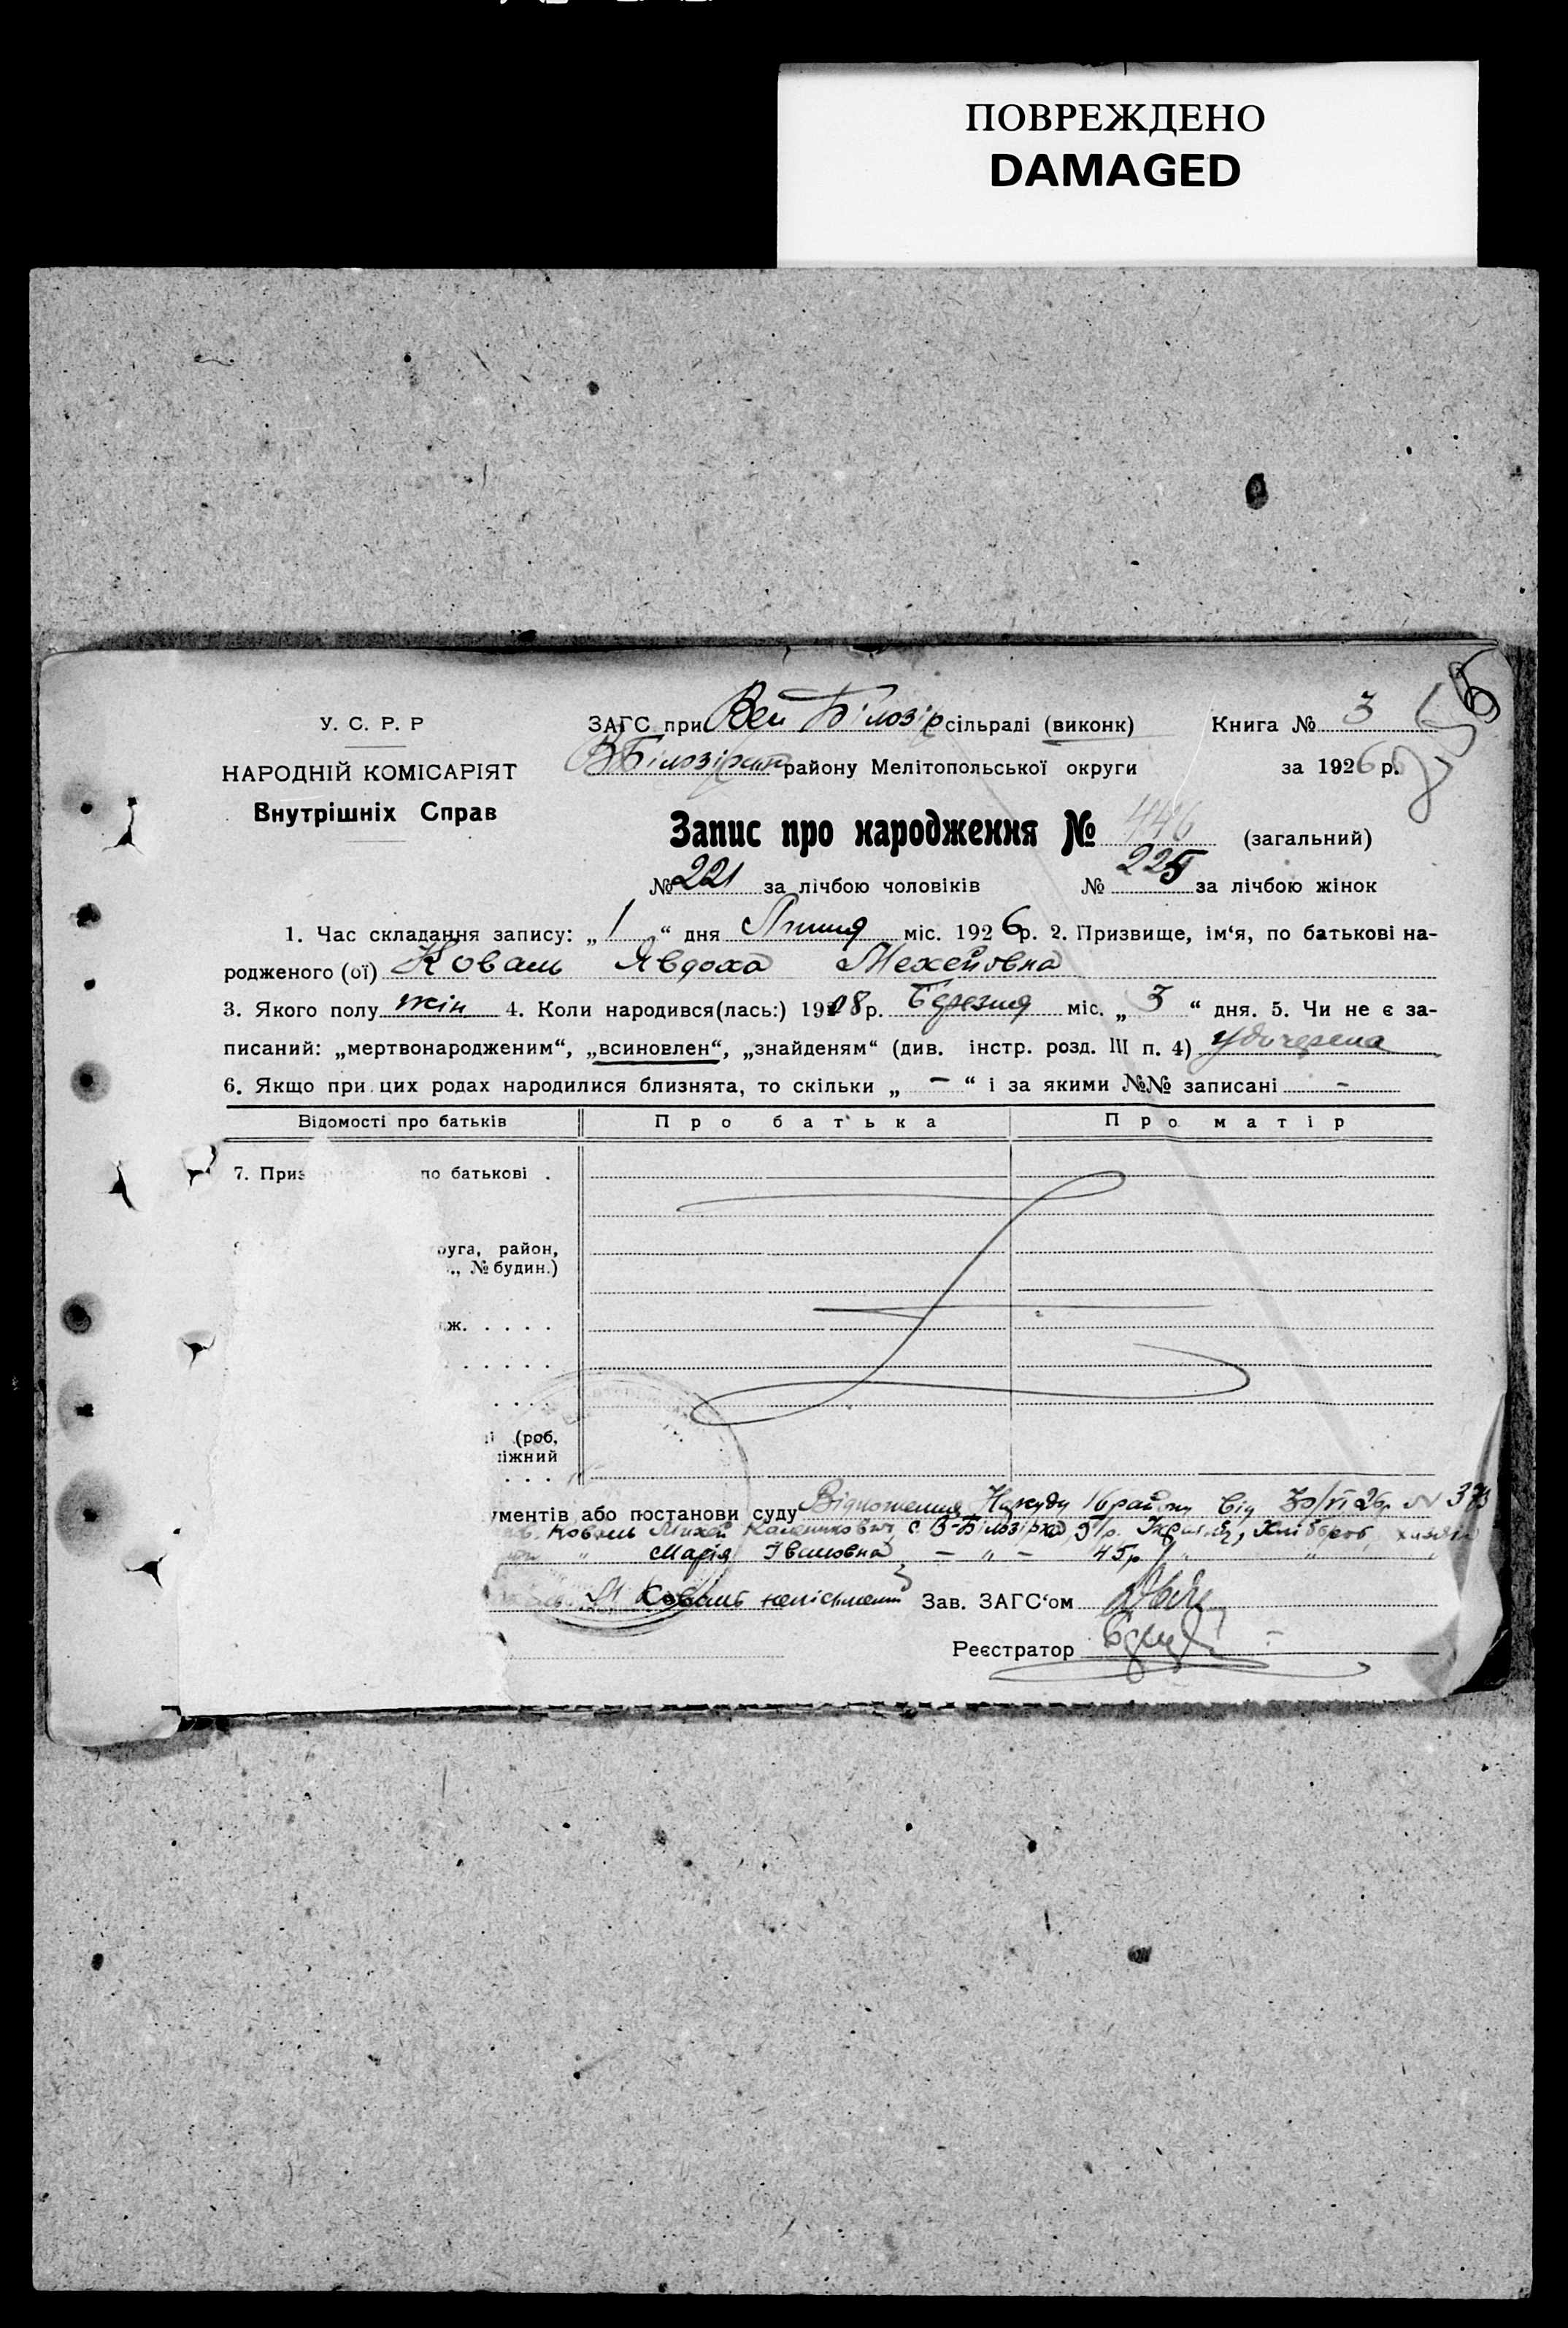 ПОВРЕЖДЕНО
DAMAGED
У. С. Р. Р
НАРОДНІЙ КОМІСАРІЯТ
Внутрішніх Справ
ЗАГС при Вел Білозір сільраді (виконк) Книга № 3
В Білозірськ району Мелітопольської округи за 1926 р.
Запис про народження № 446 (загальний)
№ 221 за лічбою чоловіків № 225 за лічбою жінок
1. Час складання запису: „ 1 “ дня Липня міс. 1926р. 2. Призвище, ім‘я, по батькові на-
родженого (ої) Коваль Явдоха Михейовна
3. Якого полу жін 4. Коли народився(лась:) 1918р. Березня міс. „ 3 “ дня. 5. Чи не є за-
писаний: „мертвонародженим“, „всиновлен“, „знайденям“ (див. інстр. розд. III п. 4) удочерена
6. Якщо при цих родах народилися близнята, то скільки „ – “ і за якими №№ записані –
Відомості про батьків Про батька Про матір
7. Приз по батькові .
руга, район,
., № будин.)
ж. . . . .
(роб,
ліжний
ументів або постанови суду Відношення Нарсуду району від 30/VI 26р N 373
Коваль Михей Каленикович, с. В-Білозірка, р. хлібороб, хазяїн
" Марія Івановна – " – 45р " " "
Коваль неписьменний Зав. ЗАГС‘ом
Реєстратор